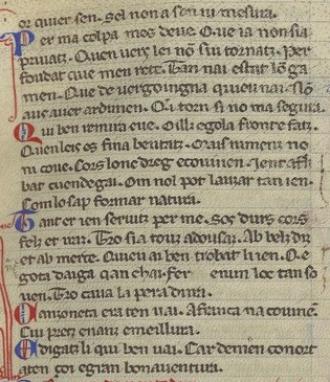 or quier sen. Sel non a sen ni mesura.
Per ma colpa mes deue. Que ia non sia
priuatz. Quen uers lei no sui tornatz. Per
foudat que men rete. Tan nai estat longa
men. Que de uergoigna qieu nai. Non
aus auer ardimen. Qi torn si no ma segura.
Qui ben remira eue. Oilz e gola front e fatz.
Quen leis es fina beutatz. mais ni meinz no
cors lonc dreg e couinen. Gent
bar cuendegai. Om nol pot lauzar tan ien.
Com lo sap formar natura.
Tant er ien seruitz per me. Sos durs cors
fels et iratz. Tro sia totz adousatz. Ab belz diz
et ab merce. Quieu ai ben trobat lien. Que
gota daiga qan chai. fer en un loc tan so
uen. Tro caua la pera dura.
Canzoneta era ten uai. A franca na
Cui pretz enanz e meillura.
E digatz li qui ben uai. Car de men conort
aten